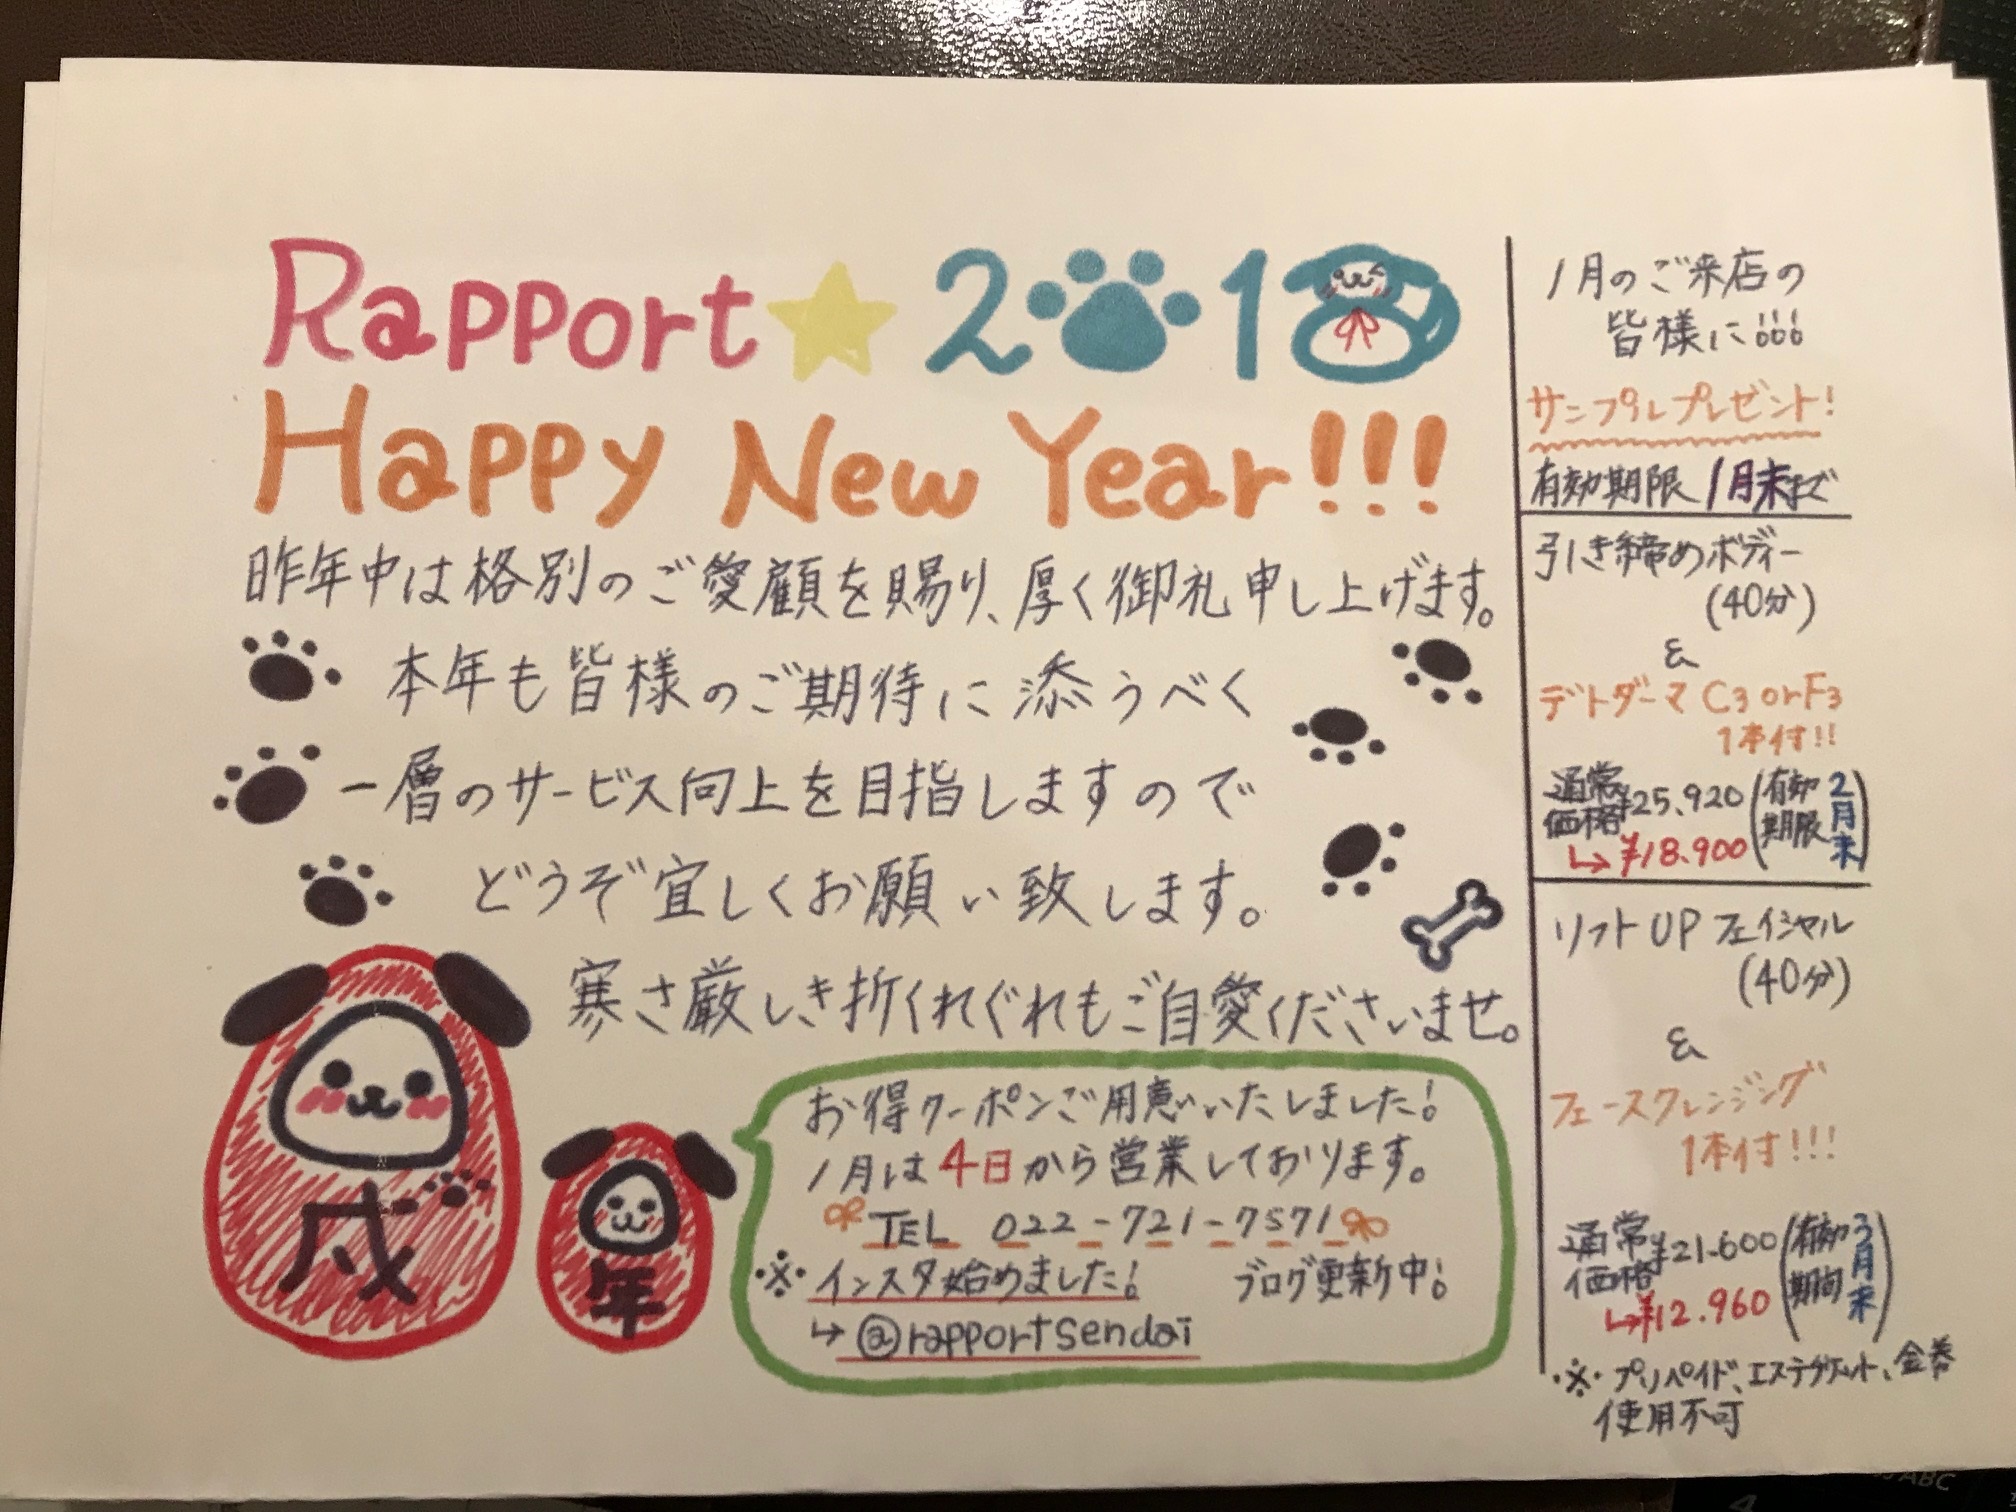 Rapport★2018
Happy New Year!!!
昨年中は格別のご愛顧を賜り、厚く御礼申し上げます。
本年も皆様のご期待に添うべく
一層のサービス向上を目指しますので
どうぞ宜しくお願い致します。
寒さ厳しき折くれぐれもご自愛くださいませ。
戌
年
お得クーポンご用意いたしました!
1月は4日から営業しております。
TEL 022-721-7571
※インスタ始めました! ブログ更新中!
↳@rapportsendai
1月のご来店の
皆様に!!!
サンプルプレゼント!
有効期限1月末まで
引き締めボディー
(40分)
&
デトダーマC3orF3
1本付!!
通常価格¥25.920(有効期限2月末)
↳¥18.900
リフトUPフェイシャル
(40分)
&
フェースクレンジング
1本付!!!
通常価格¥21.600(有効期間3月末)
↳¥12.960
※プリペイド、エステチケット、金券
使用不可
ABC